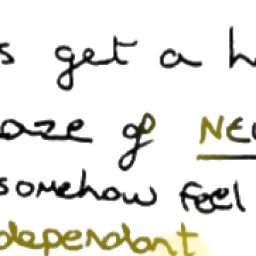 s get a h
aze of NEU
somehow feel
dependant